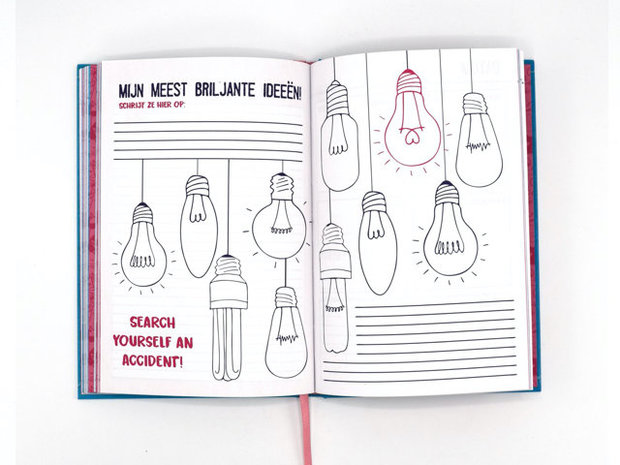 MIJN MEEST BRILJANTE IDEEËN!
SCHRIJF ZE HIER OP:
SEARCH
YOURSELF AN
ACCIDENT!